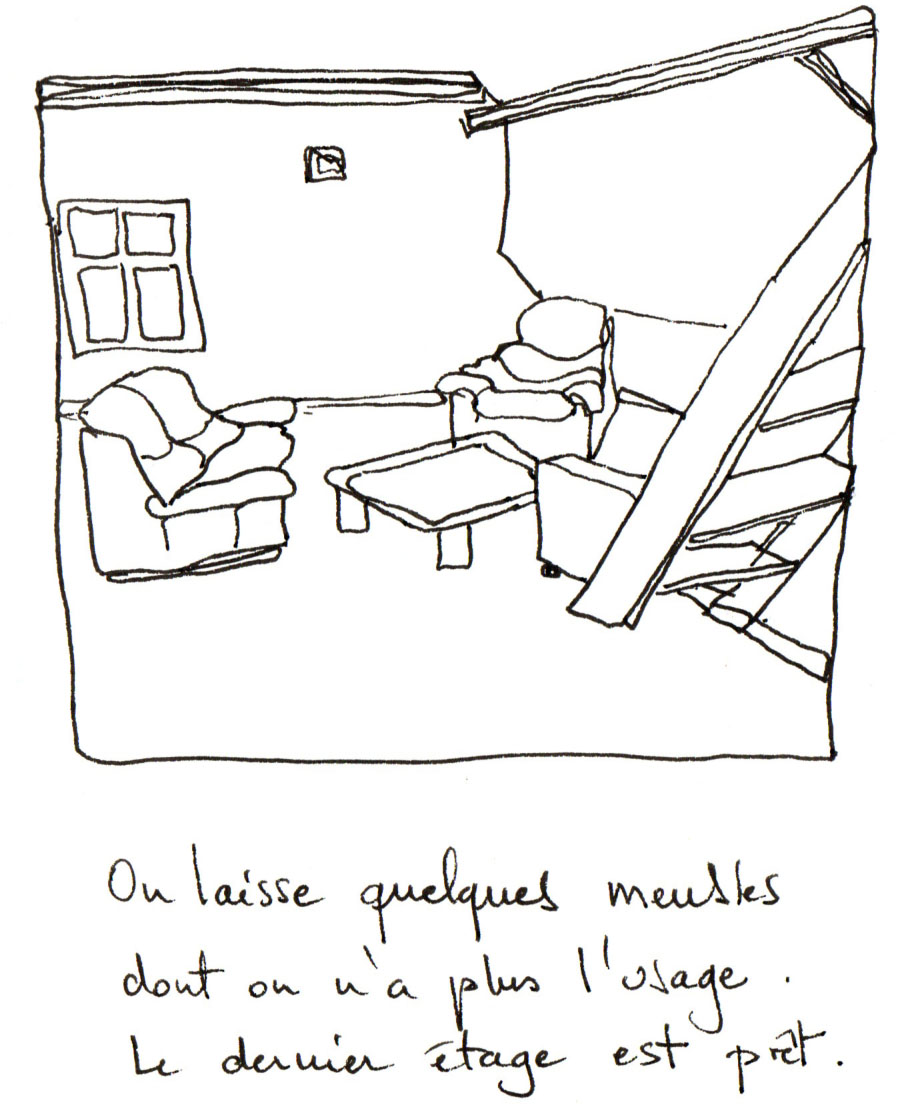 On laisse quelques meubles
dont on n'a plus l'usage.
Le dernier étage est prêt.